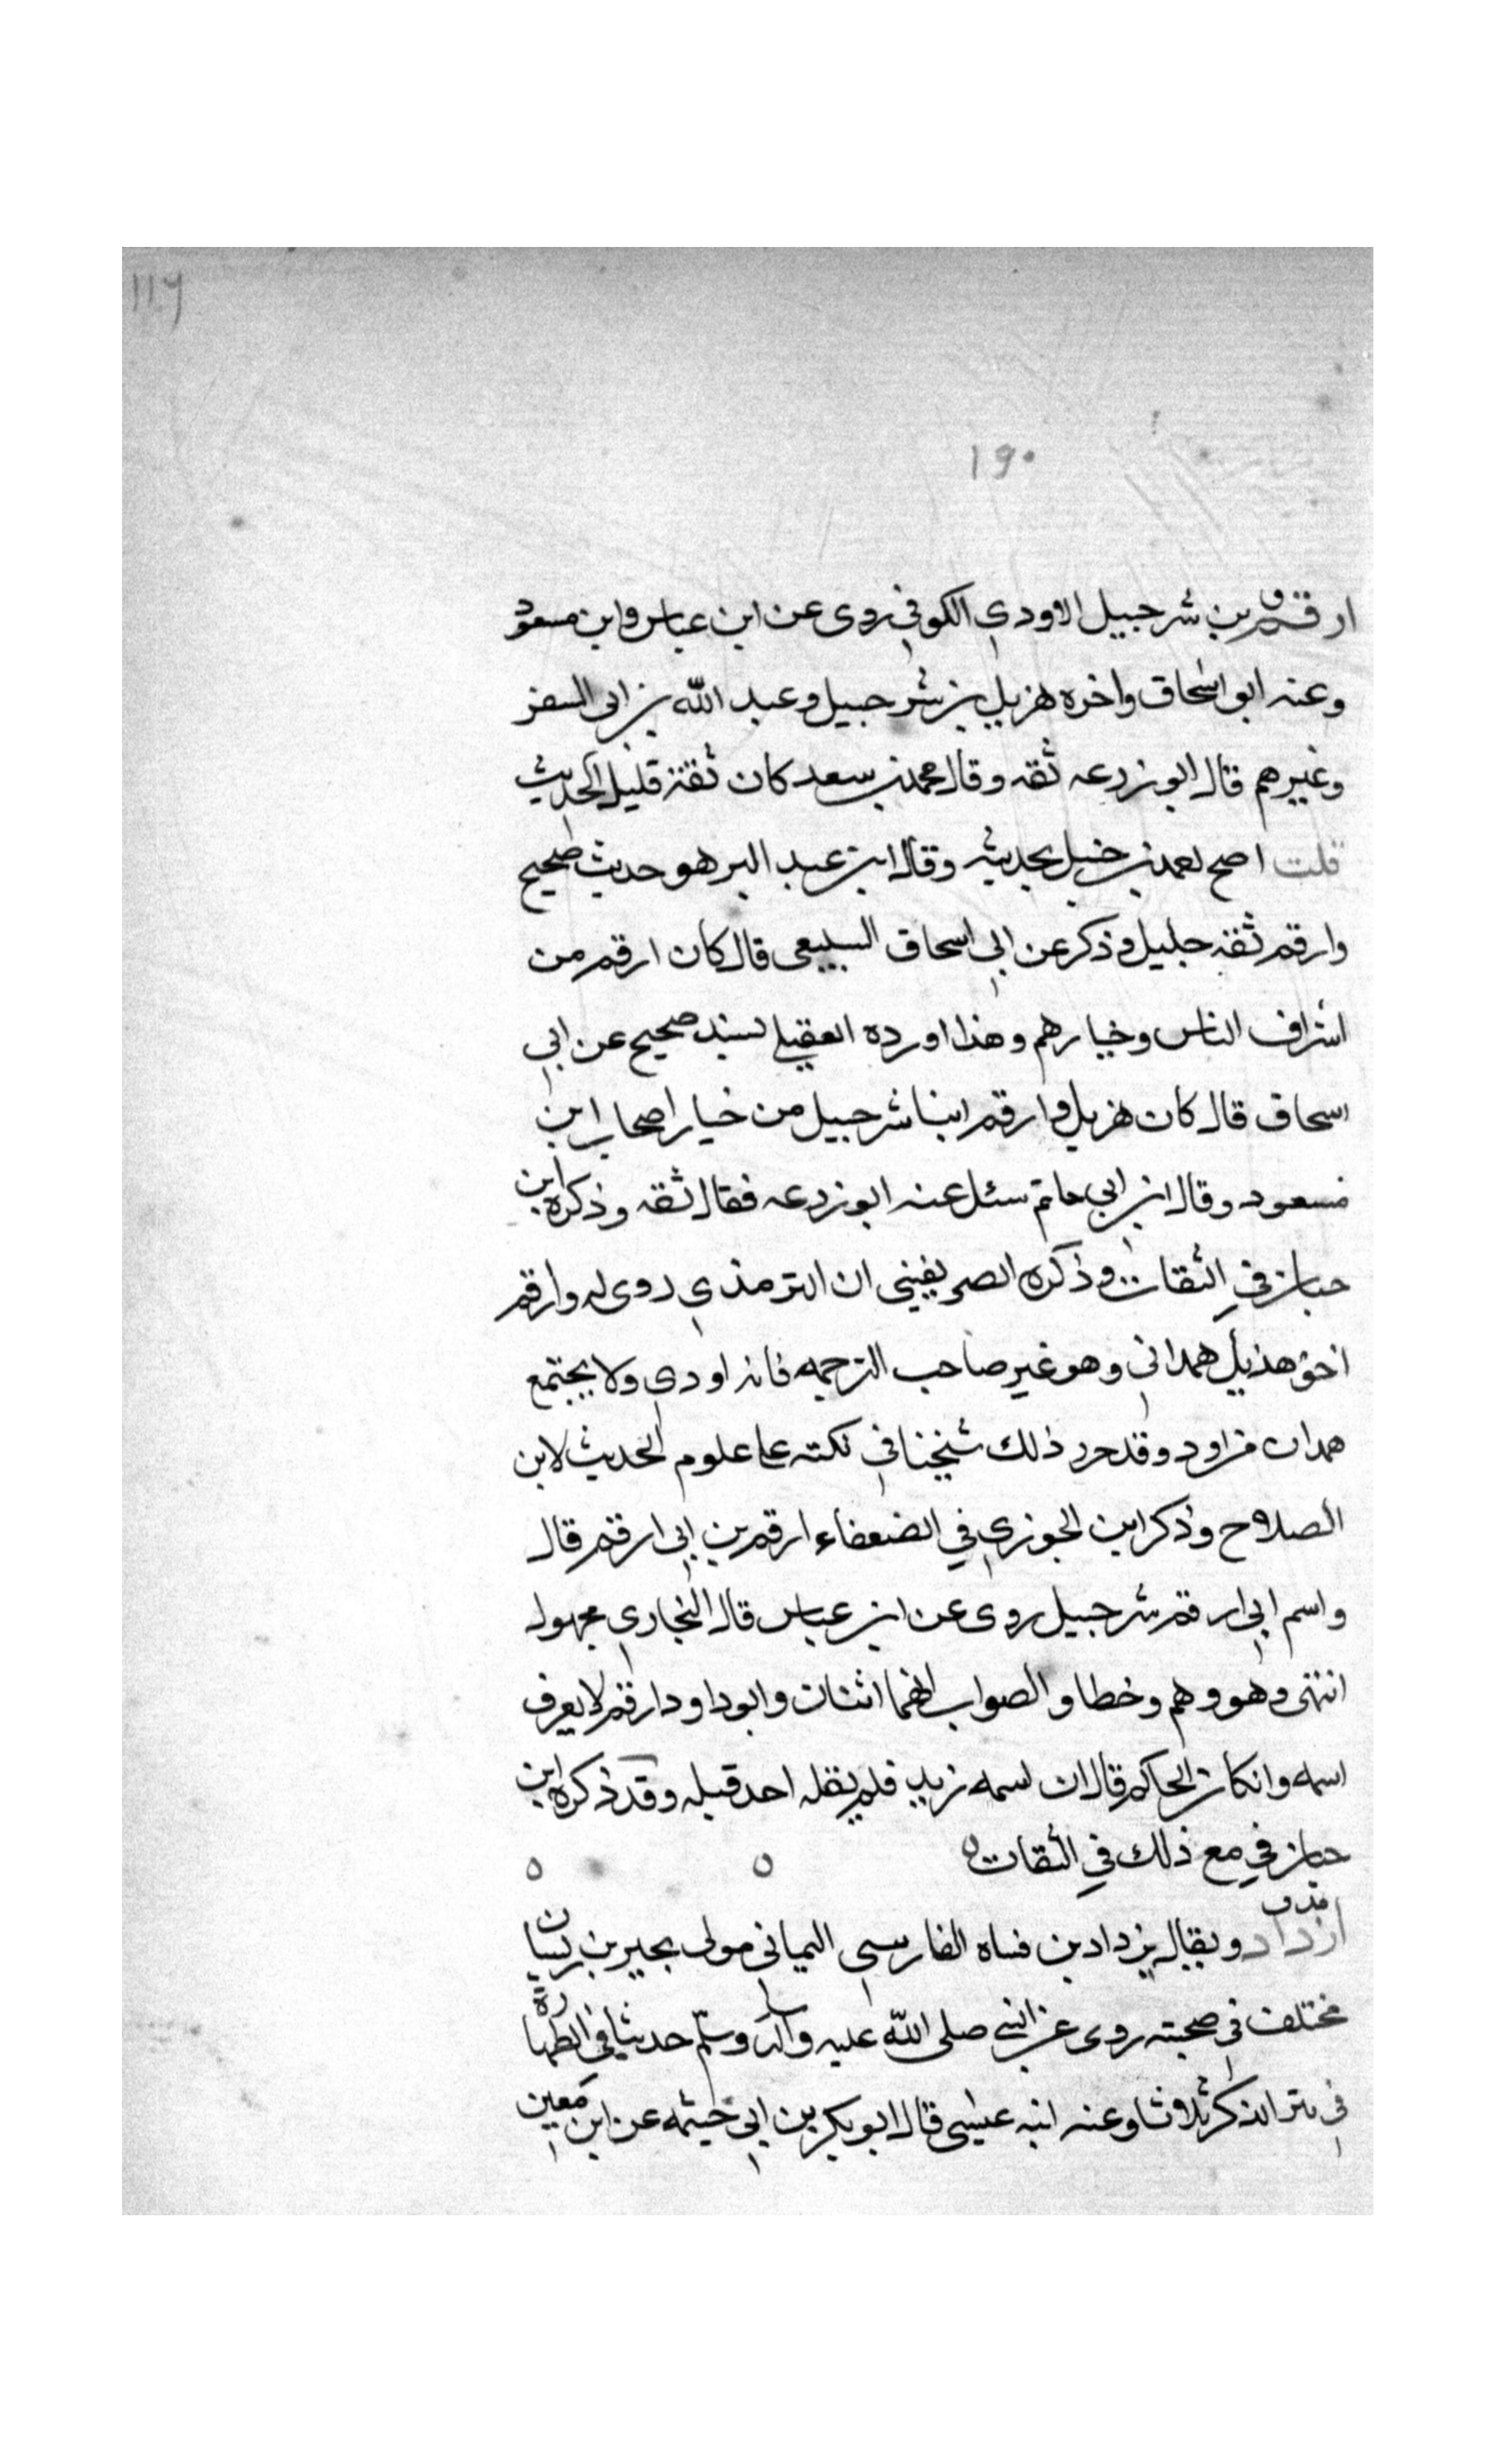 ١١٦
١٩٠
ق
ارقم بن شرحبيل الاودي الكوفي روى عن ابن عباس وابن مسعود
وعنه ابو اسحاق واخره هزيل بن شرحبيل وعبد الله بن ابي السفر
وغيرهم قال ابو زرعه ثقه وقال محمد بن سعد كان ثقة قليل الحديث
قلت احمد بن حنبل بحديثه وقال ابن عبد البر هو حديث صحيح
وارقم ثقه جليل وذكر عن ابي اسحاق السبيعي قال كان ارقم من
اشراف الناس وخيارهم وهذا اورده العقيلي بسند صحيح عن ابي
اسحاق قال كان هزيل وارقم ابنا شرحبيل من خيار اصحاب ابن
مسعود وقال ابن ابي حاتم سئل عنه ابو زرعه فقال ثقه وذكره ابن
حبان في الثقات وذكره الصريفيني ان الترمذي روى له وارقم
اخو هذيل همداني وهو غير صاحب الترجمه فانه اودي ولا يجتمع
همدان من اود وقد حرر ذلك شيخنا في نكته على علوم الحديث لابن
الصلاح وذكر ابن الجوزي في الضعفاء ارقم بن ابي ارقم قال
واسم ابي ارقم شرحبيل روى عن ابن عباس قال البخاري مجهول
انتهى وهو وهم وخطا والصواب انهما اثنان وابو داود ارقم لا يعرف
اسمه وان كان الحاكم قال ان اسمه زيد فلم يقله احد قبله وقد ذكره ابن
حبان في مع ذلك في الثقات ٥ ٥ ٥
مد ق
ازداد ويقال يزداد بن فساه الفارسي اليماني مولى بحير بن ريسان
مختلف في صحبته روى عن النبي صلى الله عليه وآله وسلم حديثا في الطهارة
في نتر الذكر ثلاثا وعنه ابنه عيسى قال ابو بكر بن ابي خيثمه عن ابن معين